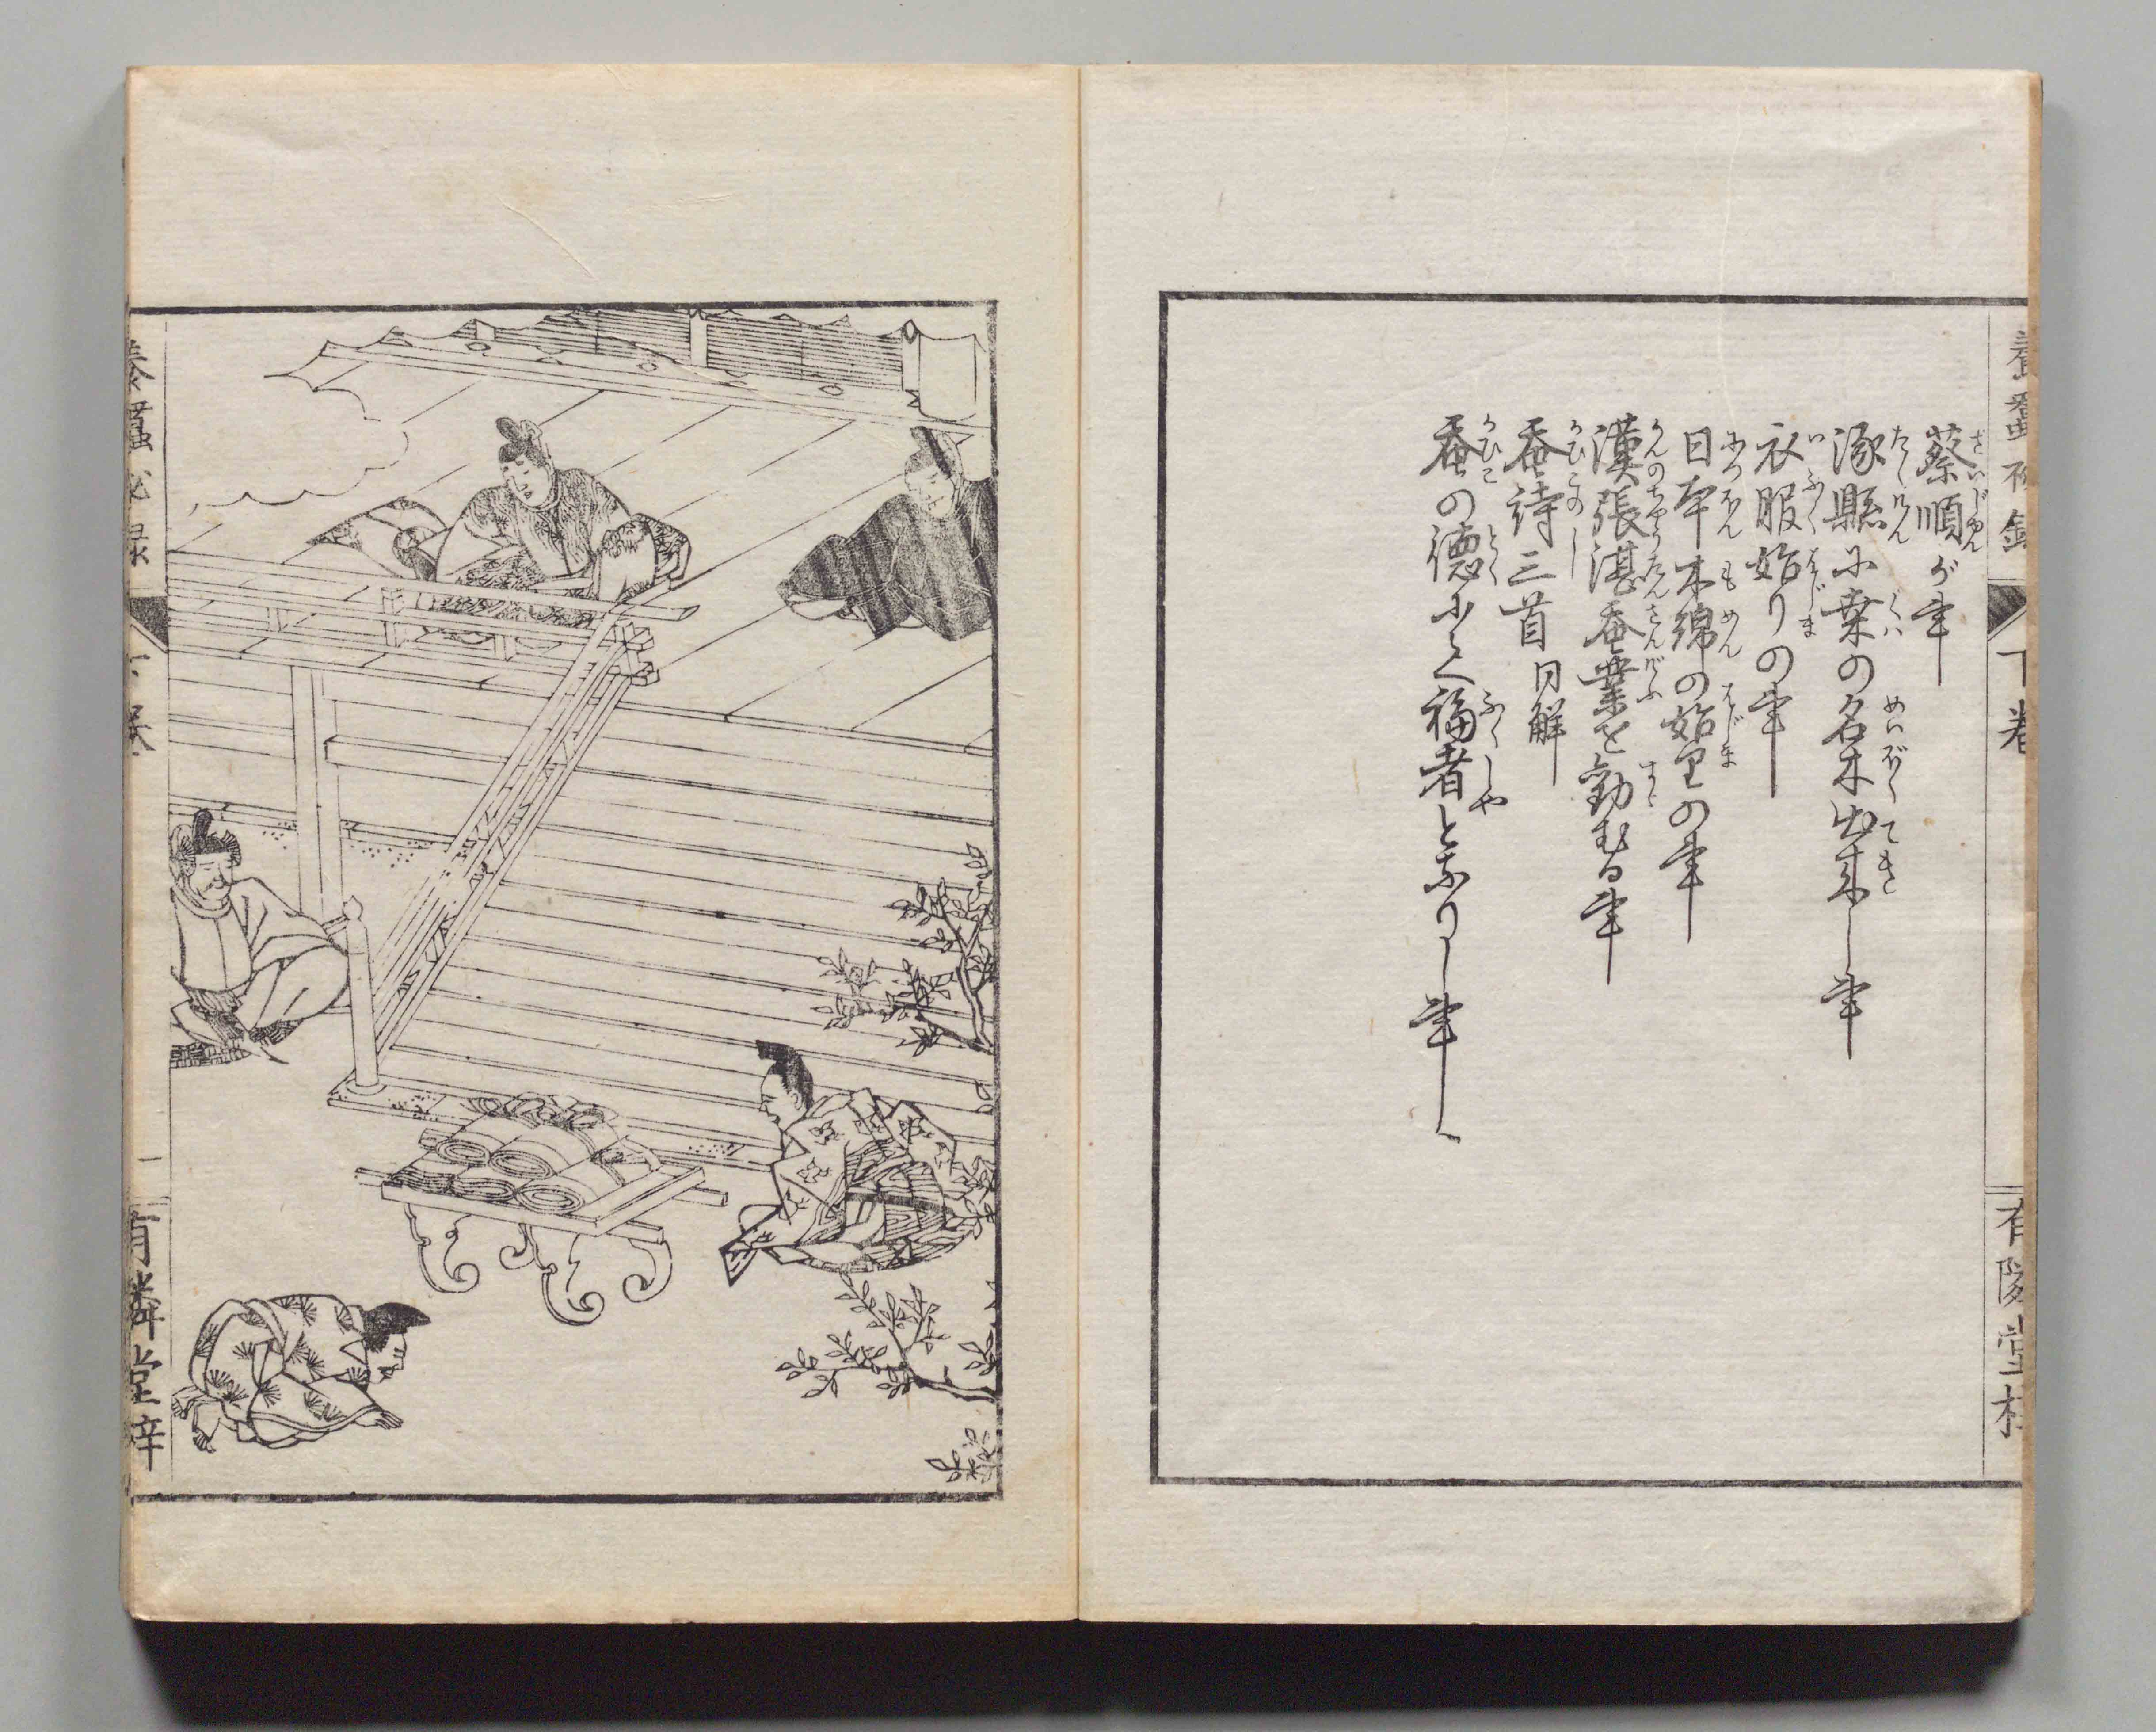 養蚕秘録
下巻
有隣堂梓
蔡順が事
涿縣に桒の名木出来し事
衣服始りの事
日本木綿の始里の事
漢張湛蚕業を勧むる事
蚕詩三首 同解
蚕の徳にて福者となりし事
養蚕秘録
下巻
一
有隣堂梓